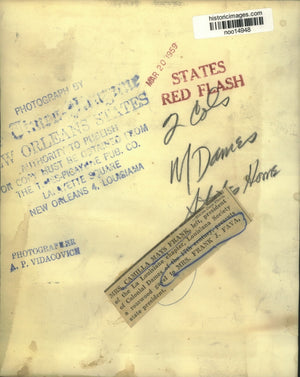 historicimages.com
noo14948
MAR 20 1959
STATES
RED FLASH
PHOTOGRAPH BY
NEW ORLEANS STATES
AUTHORITY TO PUBLISH
OR COPY MUST BE OBTAINED FROM
THE TIMES-PICAYUNE PUB. CO.
LAFAYETTE SQUARE
NEW ORLEANS 4, LOUISIANA
2 Cols
M Dames
Home
PHOTOGRAPHER
A. P. VIDACOVICH
MRS. CAMILLA MAYS FRANK, left, president
of the La Louisiane Chapter, Louisiana Society
of Colonial Dames
a rosewood
MRS. FRANK J. FAVA,
state president.